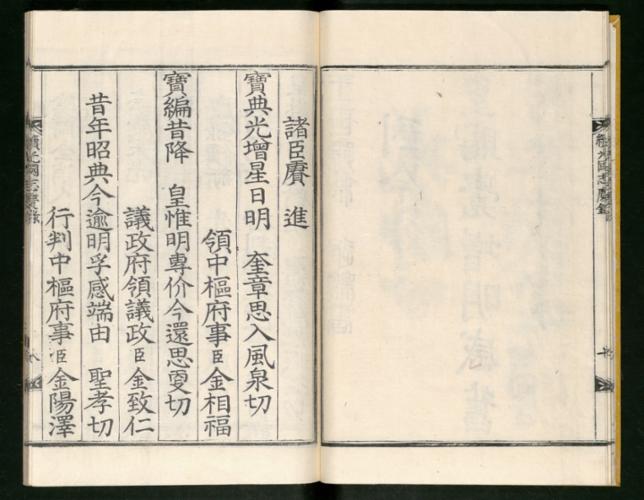 諸臣賡 進
寶典光增星日明 奎章思入風泉切
領中樞府事臣金相福
寶編昔降 皇惟明專价今還思憂切
議政府領議政臣金致仁
昔年昭典今逾明孚感端由 聖孝切
行判中樞府事臣金陽澤
續光國志慶錄